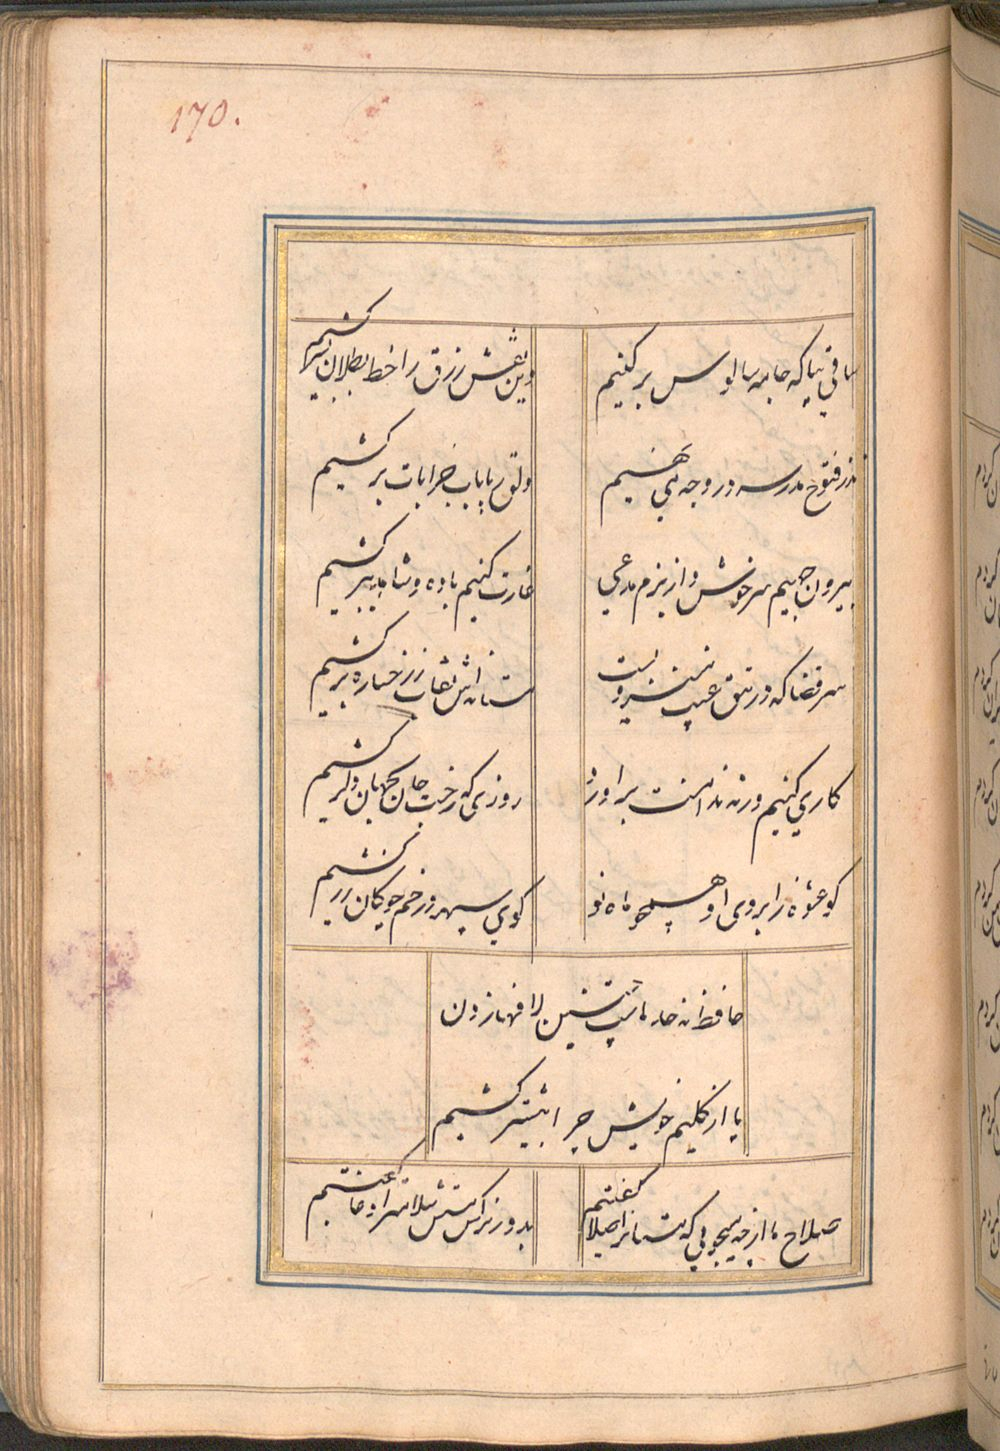 170.
ساقی بیا که جامه سالوس برکشیم
وین نقش زرق را خط بطلان بسر کشیم
نذر فتوح مدرسه در وجه می نهیم
دلق ریا بآب خرابات بر کشیم
بیرون جهیم سرخوش و از بزم مدعی
غارت کنیم باده و شاهد ببر کشیم
سر قضا که در تتق غیب منزویست
مستانه اش نقاب ز رخساره بر کشیم
کاری کنیم ورنه ندامت بر آورد
روزی که رخت جان بجهان دگر کشیم
کو عشوه ز ابروی او همچو ماه نو
کوی سپهر در خم چوکان زر کشیم
حافظ نه حد ماست چنین لافها زدن
پا از گلیم خویش چرا بیشتر کشیم
صلاح ما از چه میجویی که مستانرا صلا گفتیم
بدور نرگس مستش سلامت را دعا گفتیم